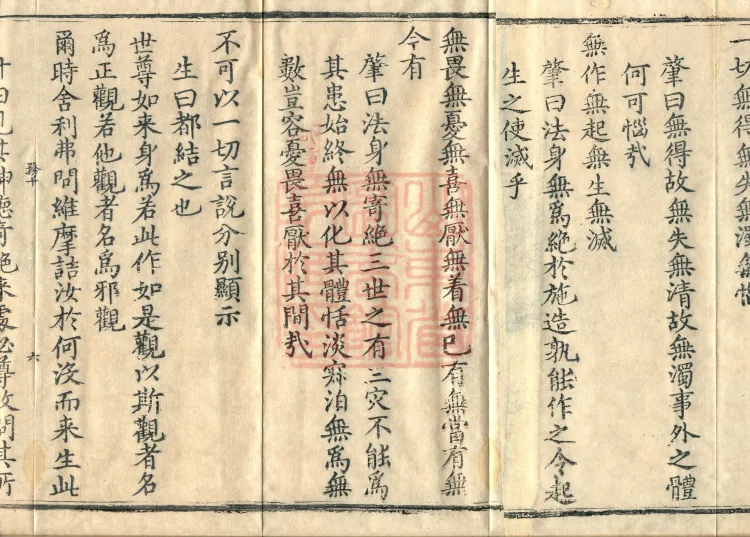 一切無得無失無濁無惱
肇曰無得故無失無清故無濁事外之體
何可惱㢤
無作無起無生無滅
肇曰法身無爲絶於施造孰能作之令起
生之使滅乎
無畏無憂無喜無厭無着無已有無當有無
今有
肇曰法身無寄絶三世之有三灾不能爲
其患始終無以化其體恬淡寂泊無爲無
數豈容憂畏喜厭於其間㢤
不可以一切言說分别顯示
生曰都結之也
世尊如来身爲若此作如是觀以斯觀者名
爲正觀若他觀者名爲邪觀
爾時舍利弗問維摩詰汝於何沒而来生此
六
什曰見其神德奇絶来處必尊故問其所